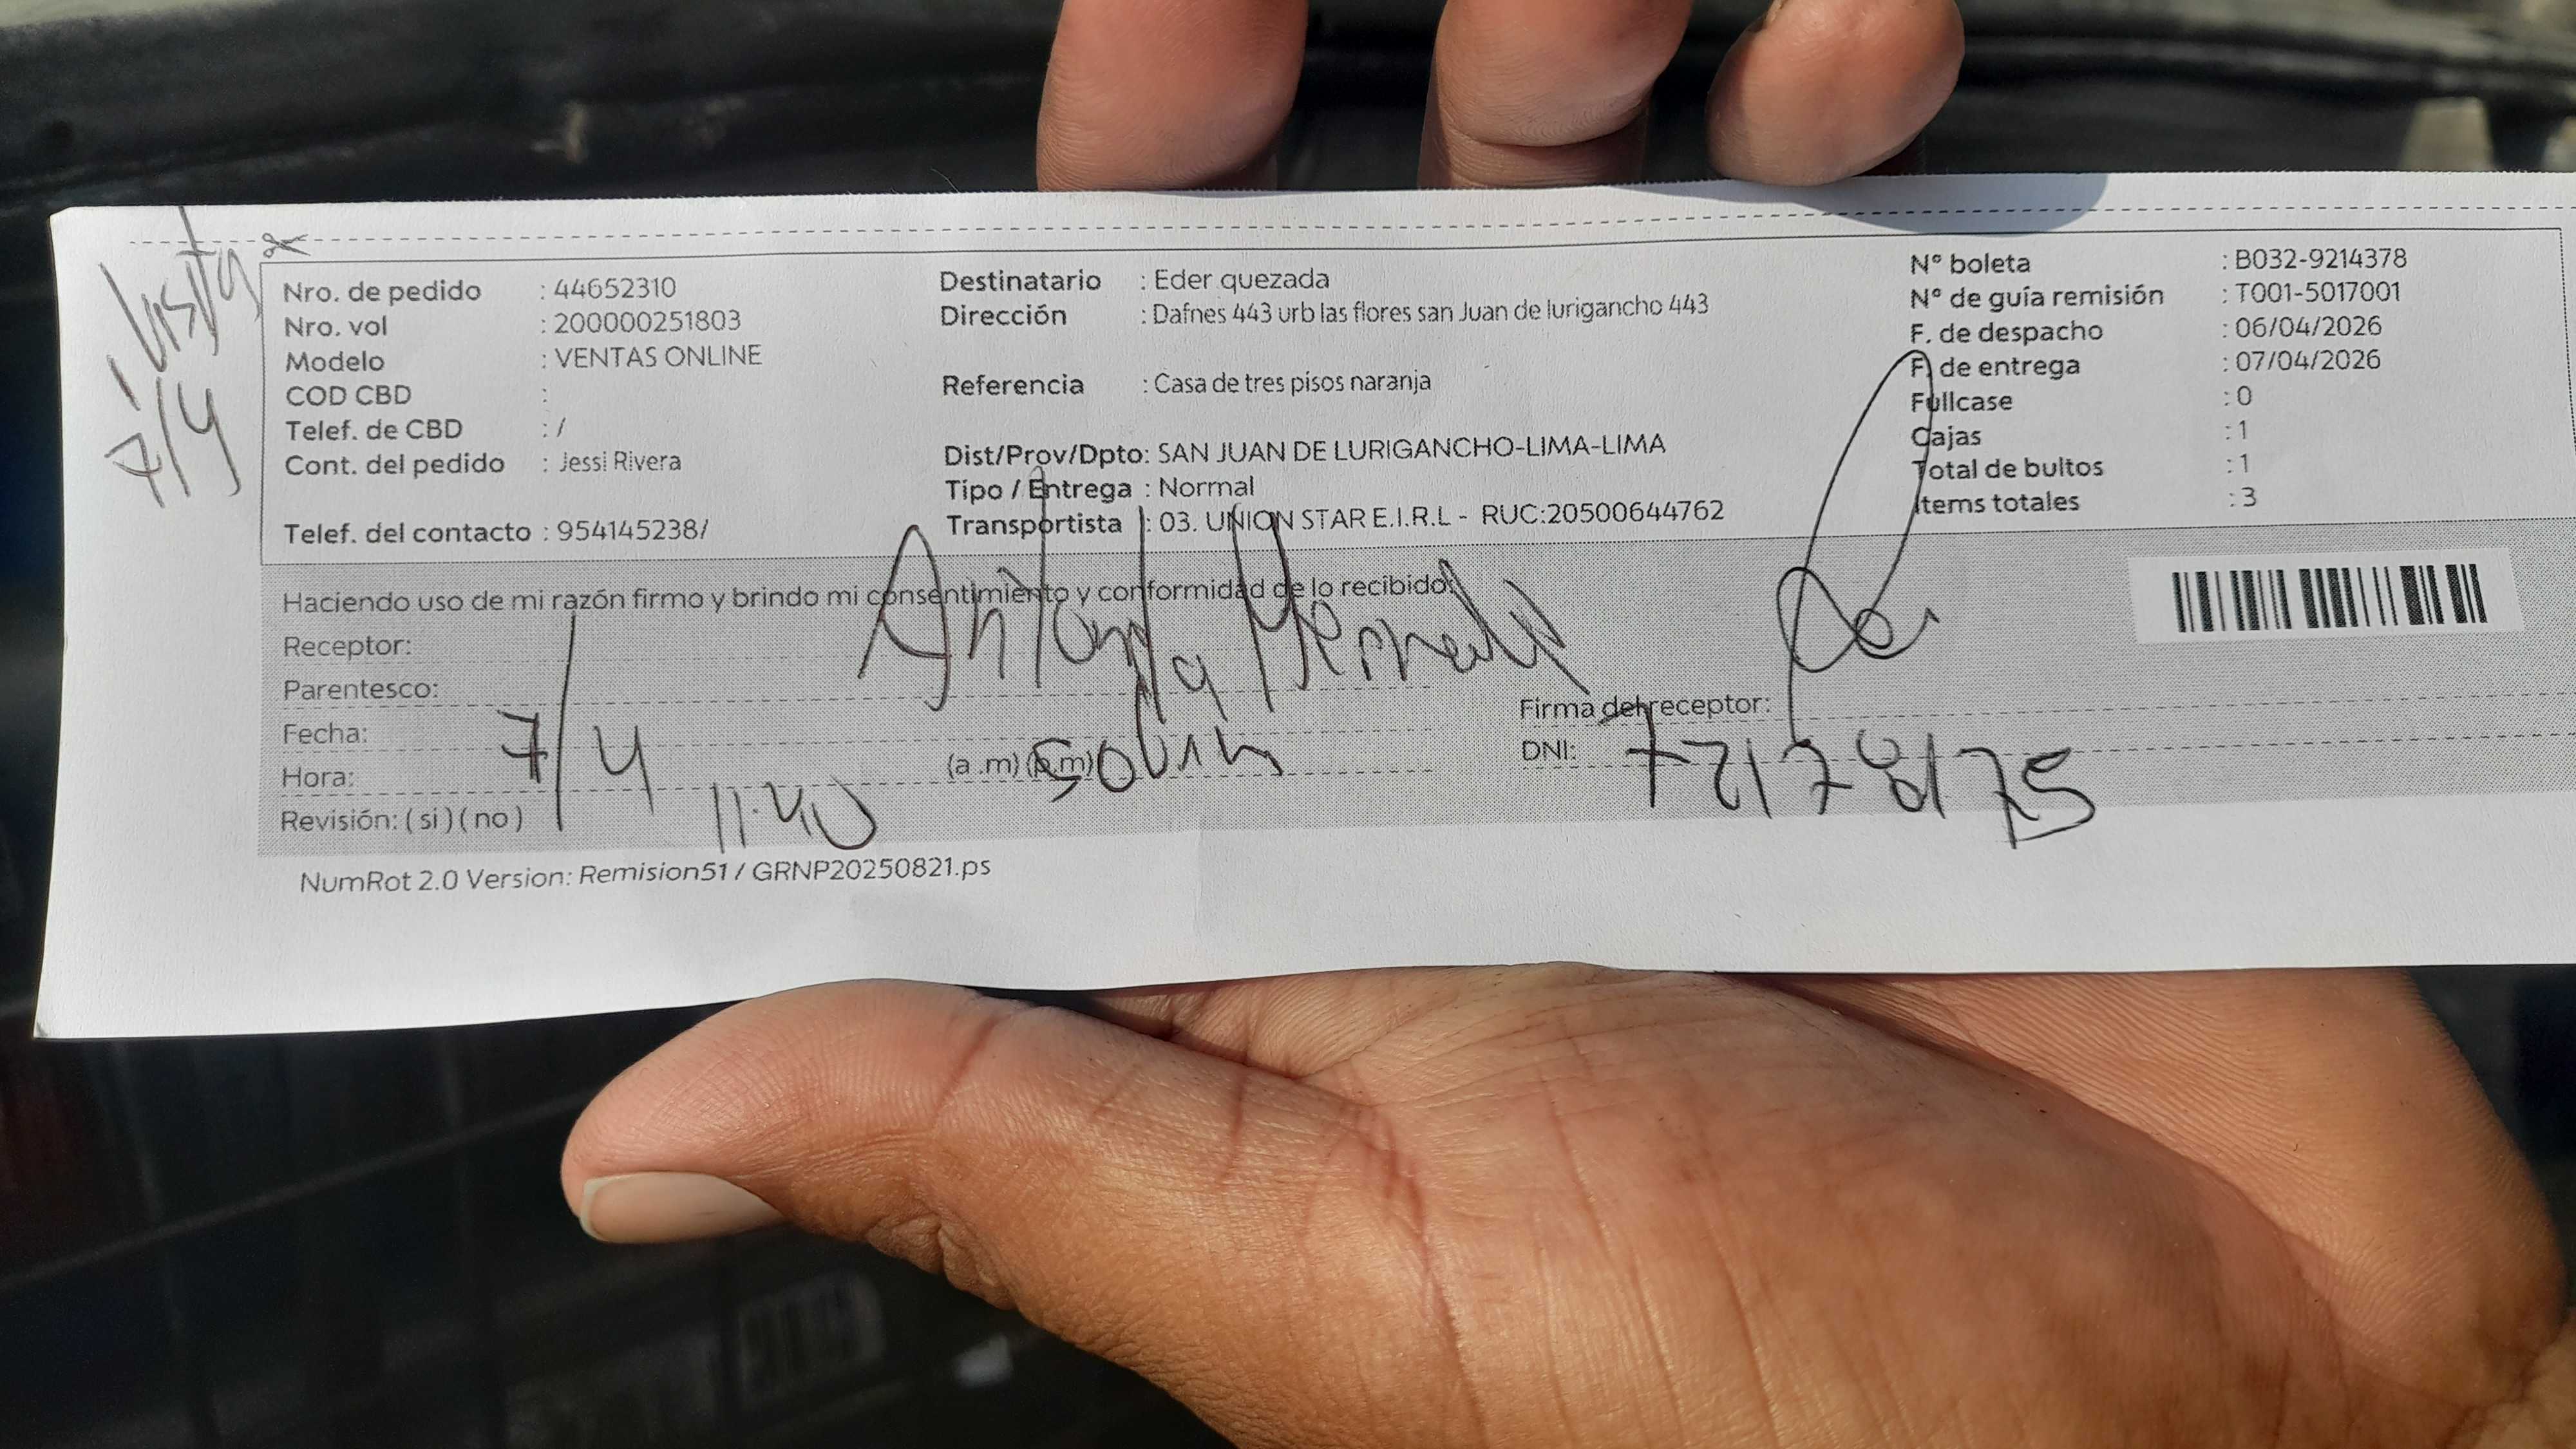 1 Visita
7/4
Nro. de pedido : 44652310
Nro. vol : 200000251803
Modelo : VENTAS ONLINE
COD CBD :
Telef. de CBD : /
Cont. del pedido : Jessi Rivera
Telef. del contacto : 954145238/
Destinatario : Eder quezada
Dirección : Dafnes 443 urb las flores san Juan de lurigancho 443
Referencia : Casa de tres pisos naranja
Dist/Prov/Dpto: SAN JUAN DE LURIGANCHO-LIMA-LIMA
Tipo / Entrega : Normal
Transportista : 03. UNION STAR E.I.R.L - RUC:20500644762
N° boleta : B032-9214378
N° de guía remisión : T001-5017001
F. de despacho : 06/04/2026
F. de entrega : 07/04/2026
Fullcase : 0
Cajas : 1
Total de bultos : 1
Items totales : 3
Haciendo uso de mi razón firmo y brindo mi consentimiento y conformidad de lo recibido:
Receptor:
Parentesco:
Fecha: 7/4
Hora: 11:40 (a .m) (p.m)
Revisión: ( si ) ( no )
Firma del receptor:
DNI: 72178175
NumRot 2.0 Version: Remision51 / GRNP20250821.ps